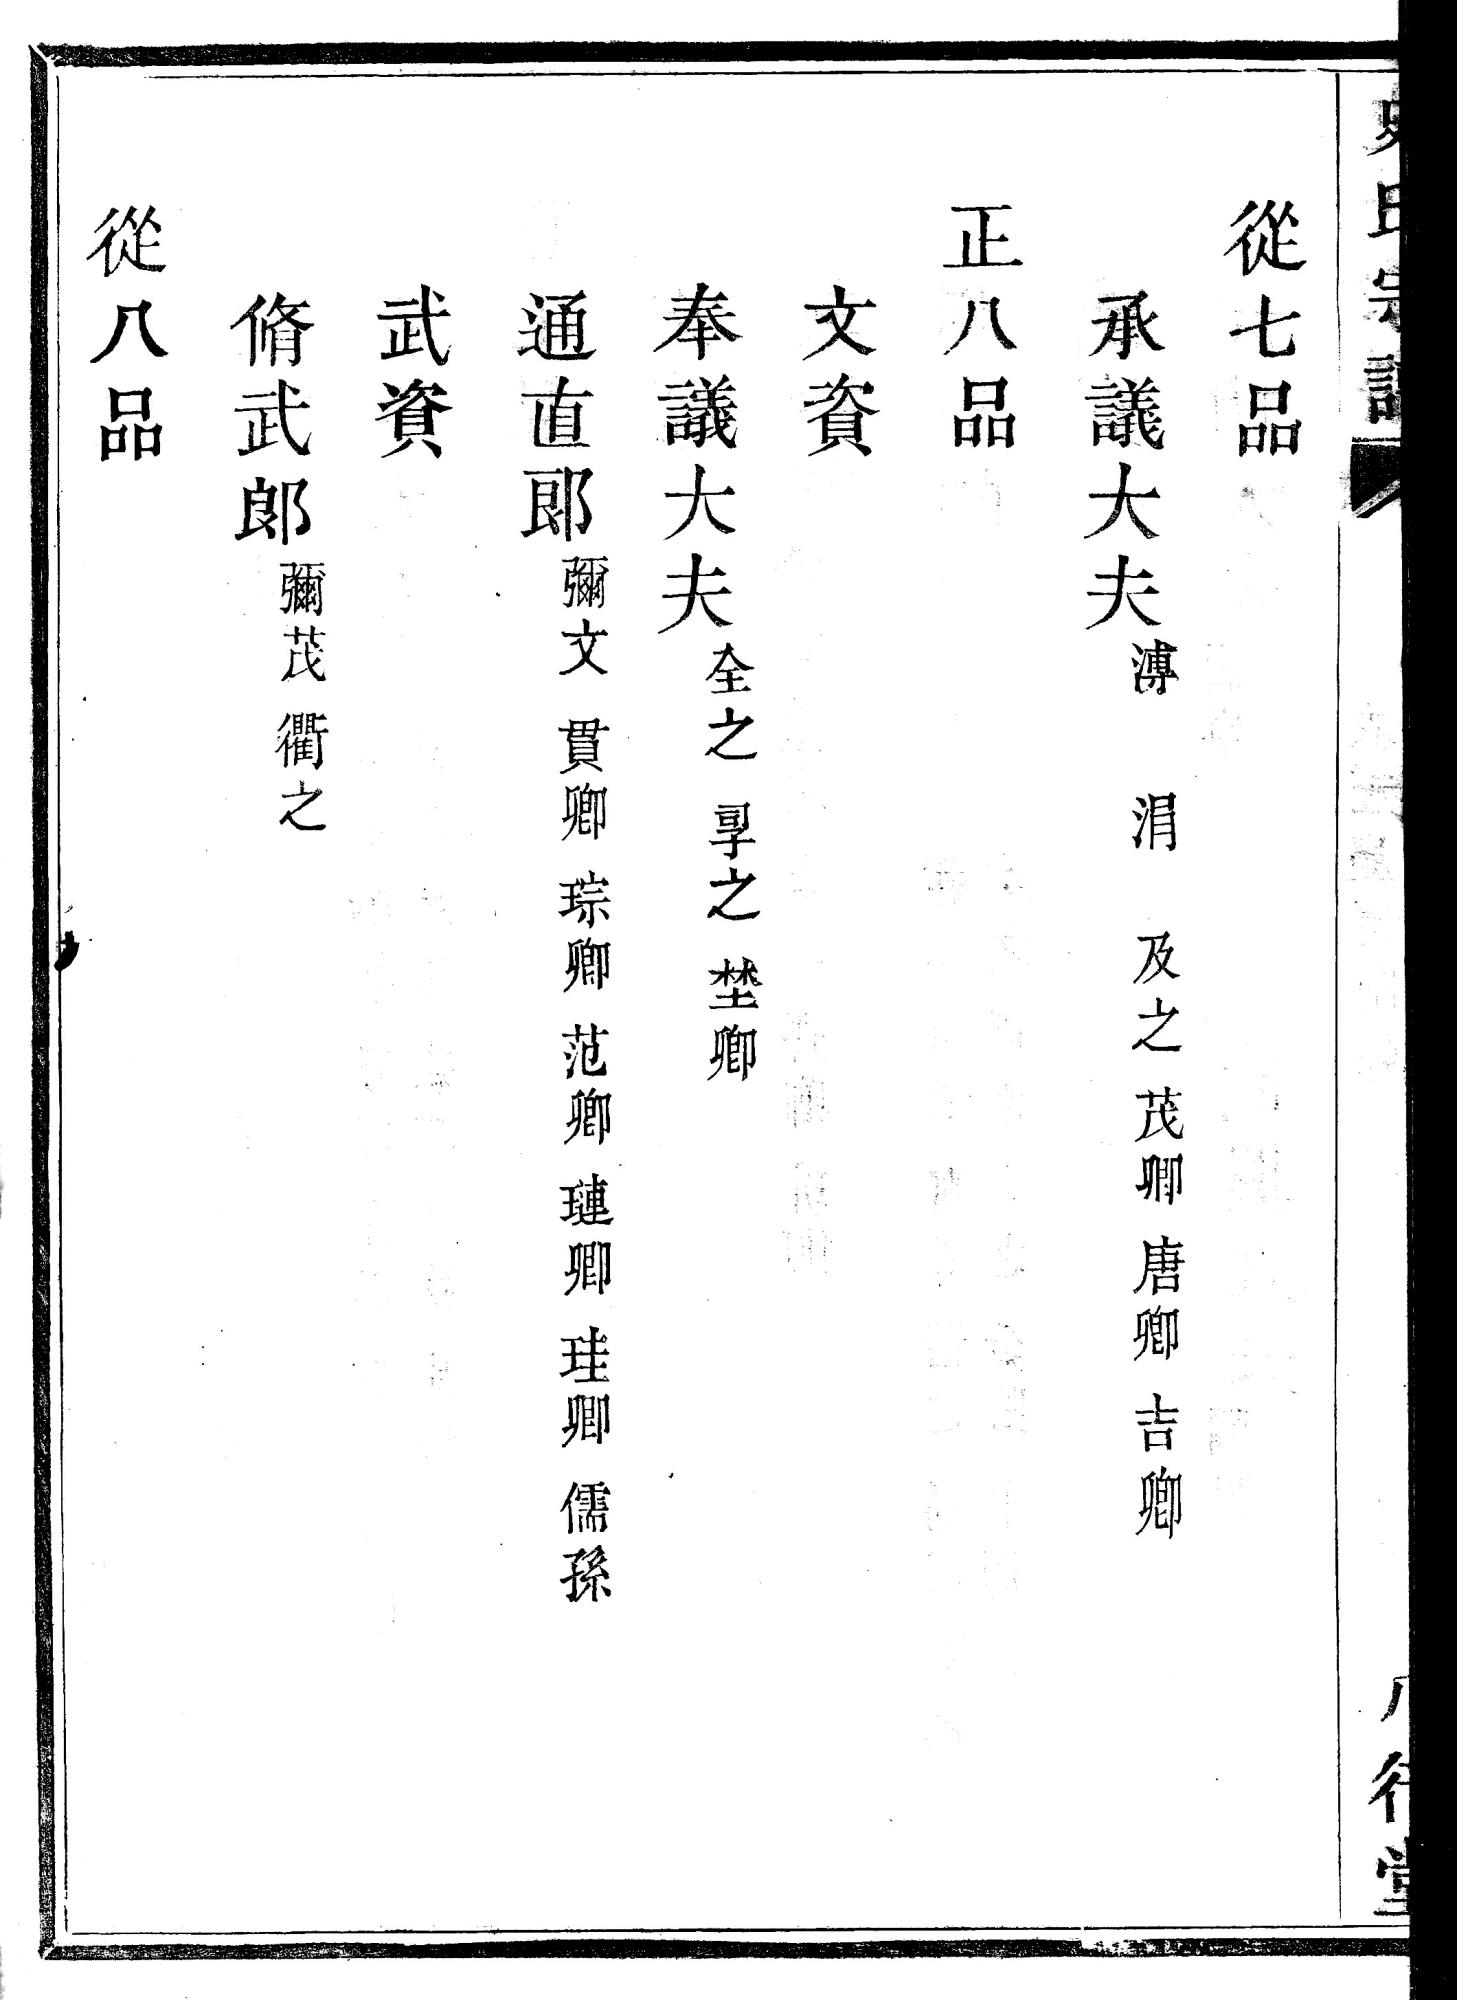 史氏宗譜
從七品
承議大夫 溥 涓 及之 茂卿 唐卿 吉卿
正八品
文資
奉議大夫 全之 㝇之 埜卿
通直郎 彌文 貫卿 琮卿 范卿 璉卿 珪卿 儒孫
武資
脩武郎 彌茂 衢之
從八品
八行堂